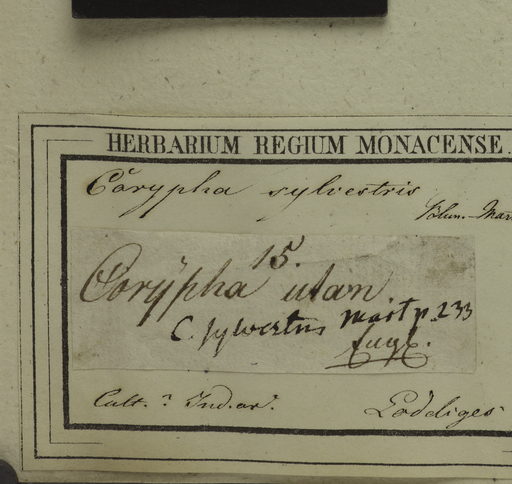 HERBARIUM REGIUM MONACENSE.
Corypha sylvestris
Blum. Mar
15.
Corÿpha utan
C. sylvestris Mart p. 233
Cult. ? Ind. or.
Loddiges